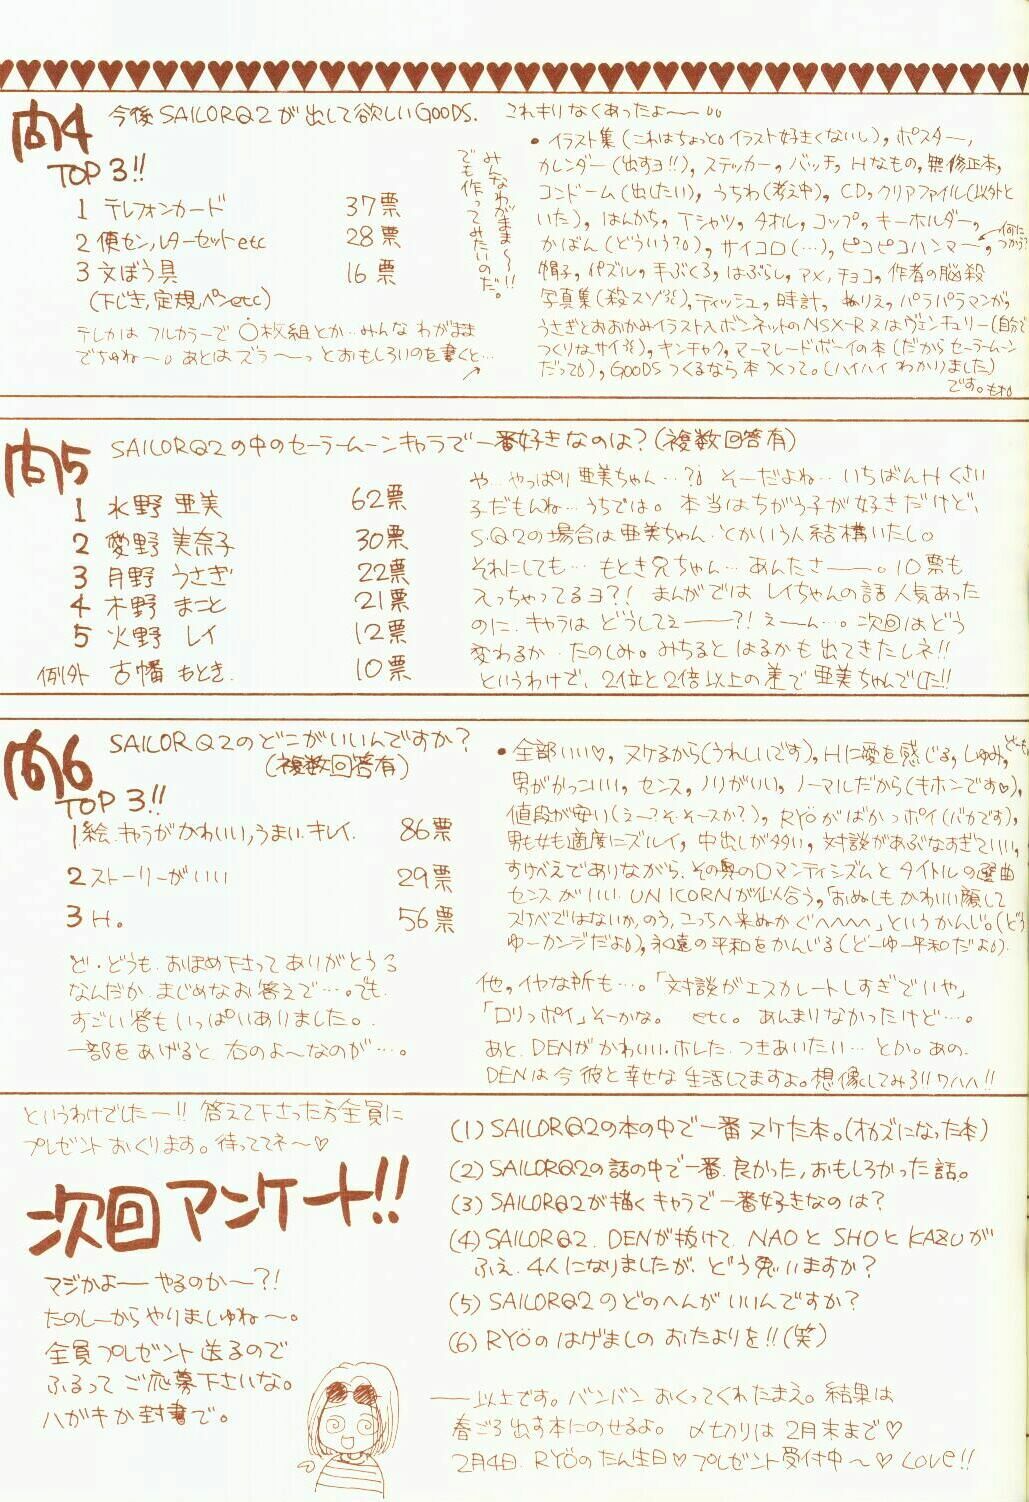 問4 今後SAILORQ2が出して欲しいGOODS.
TOP 3!!
1 テレフォンカード 37票
2 便セン、レターセットetc 28票
3 文ぼう具 16票
(下じき,定規,ペンetc)
みんなわがまま〜!!
でも作ってみたいのだ。
テレカはフルカラーで〇枚組とか…みんなわがまま
でちゅね〜。あとはズラ〜〜っとおもしろいのを書くと…
これキリなくあったよ〜〜
・イラスト集(これはちょっと。イラスト好きくないし), ポスター,
カレンダー(出すヨ!!), ステッカー, バッチ, Hなもの, 無修正本,
コンドーム(出したい), うちわ(考え中), CD, クリアファイル(以外と
いた), はんかち, Tシャツ, タオル, コップ, キーホルダー,
かばん(どういう?), サイコロ(…), ピコピコハンマー, 何につかう?
帽子, パズル, 手ぶくろ, はぶらし, アメ, チョコ, 作者の脳殺
写真集(殺スゾ), ティッシュ, 時計, ぬりえ, パラパラマンガ,
うさぎとおおかみイラスト入ボンネットのNSX-R又はヴェンチュリー(自分で
つくりなサイ), キンチャク, マーマレードボーイの本(だからセーラームーン
だって), GOODSつくるなら本つくって。(ハイハイわかりました)
です。
問5 SAILORQ2の中のセーラームーンキャラで一番好きなのは?(複数回答有)
1 水野 亜美 62票
2 愛野 美奈子 30票
3 月野 うさぎ 22票
4 木野 まこと 21票
5 火野 レイ 12票
例外 古幡 もとき. 10票
や…やっぱり亜美ちゃん…?! そーだよね…いちばんHくさい
子だもんね…うちでは。本当はちがう子が好きだけど、
S.Q2の場合は亜美ちゃん.とかいう人結構いたし。
それにしても…もとき兄ちゃん…あんたさー―。10票も
入っちゃってるヨ?! まんがではレイちゃんの話人気あった
のに.キャラはどうしてえー――?! えーん…。次回はどう
変わるか.たのしみ。みちるとはるかも出てきたしネ!!
というわけで、2位と2倍以上の差で亜美ちゃんでした!!
問6 SAILORQ2のどこがいいんですか?
(複数回答有)
TOP 3!!
1.絵.キャラがかわいい,うまい.キレイ. 86票
2 ストーリーがいい 29票
3 H. 56票
ど・どうも.おほめ下さってありがとう
なんだか.まじめなお答えで…。でも.
すごい答もいっぱいありました。
一部をあげると.右のよ〜なのが…。
・全部いい♡, ヌケるから(うれしいです), Hに愛を感じる, しゅみ, どーも
男がかっこいい, センス, ノリがいい, ノーマルだから(キホンです♡),
値段が安い(えー?そ.そースか?), RYÖがばかっポイ(バカです),
男も女も適度にズルイ, 中出しが多い, 対談があぶなすぎていい,
すけべえでありながら.その奥のロマンティシズムとタイトルの選曲
センスがいい.UNICORNが似合う,「おぬしもかわいい顔して
スケベではないか.のう,こっちへ来ぬかぐへへへへ」というかんじ。(どう
ゆーカンジだよ), 永遠の平和をかんじる(どーゆー平和だよ).
他,イヤな所も…。「対談がエスカレートしすぎでいや」
「ロリっポイ」そーかな。 etc. あんまりなかったけど…。
あと.DENがかわいい.ホレた.つきあいたい…とか。あの.
DENは今彼と幸せな生活してますよ。想像してみろ!!ワハハ!!
というわけでした〜!! 答えて下さった方全員に
プレゼントおくります。待っててネ〜♡
次回アンケート!!
マジかよー やるのか〜?!
たのしーからやりましゅね〜。
全員プレゼント送るので
ふるってご応募下さいな。
ハガキか封書で。
(1) SAILORQ2の本の中で一番ヌケた本。(オカズになった本)
(2) SAILORQ2の話の中で一番.良かった,おもしろかった話。
(3) SAILORQ2が描くキャラで一番好きなのは?
(4) SAILORQ2.DENが抜けて.NAOとSHOとKAZUが
ふえ.4人になりましたが.どう思いますか?
(5) SAILORQ2のどのへんがいいんですか?
(6) RYÖのはげましのおたよりを!!(笑)
――以上です。バンバンおくってくれたまえ。結果は
春ごろ出す本にのせるよ。〆切りは2月末まで♡
2月4日.RYÖのたん生日♡プレゼント受付中〜♡ LOVE!!